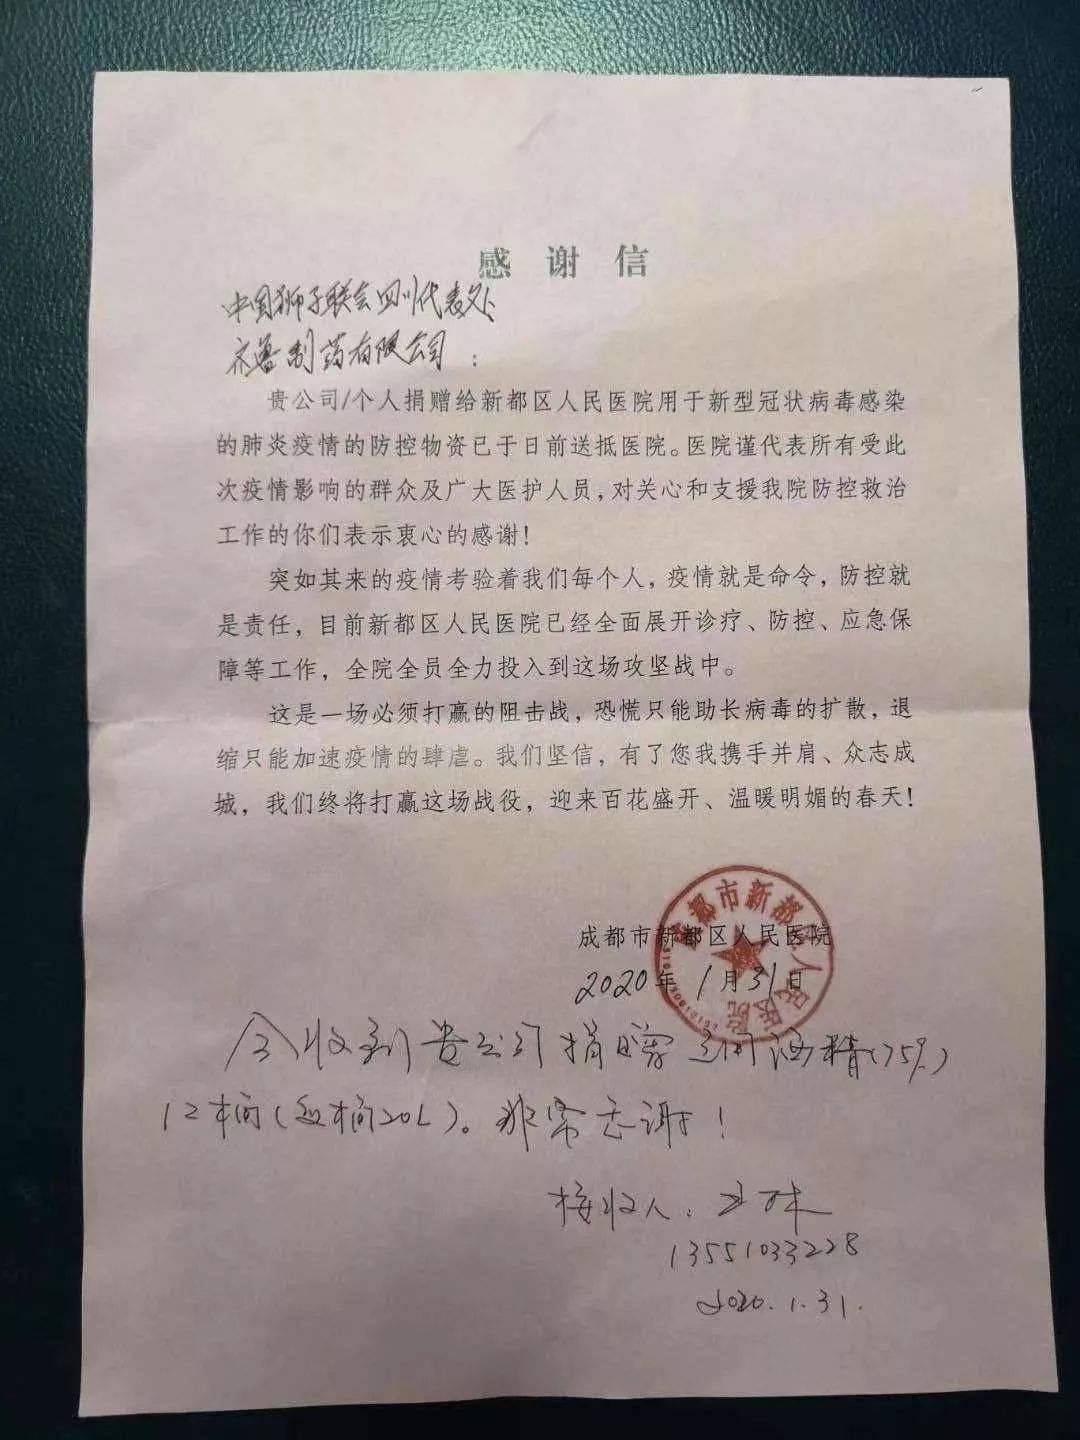 感谢信
中国狮子联会四川代表处
齐鲁制药有限公司：
贵公司/个人捐赠给新都区人民医院用于新型冠状病毒感染
的肺炎疫情的防控物资已于日前送抵医院。医院谨代表所有受此
次疫情影响的群众及广大医护人员，对关心和支援我院防控救治
工作的你们表示衷心的感谢！
突如其来的疫情考验着我们每个人，疫情就是命令，防控就
是责任，目前新都区人民医院已经全面展开诊疗、防控、应急保
障等工作，全院全员全力投入到这场攻坚战中。
这是一场必须打赢的阻击战，恐慌只能助长病毒的扩散，退
缩只能加速疫情的肆虐。我们坚信，有了您我携手并肩、众志成
城，我们终将打赢这场战役，迎来百花盛开、温暖明媚的春天！
成都市新都区人民医院
2020年1月31日
成都市新都区人民医院
今收到贵公司捐赠医用酒精(75%)
12桶(每桶20L)。非常感谢！
接收人：
13551033228
2020.1.31.